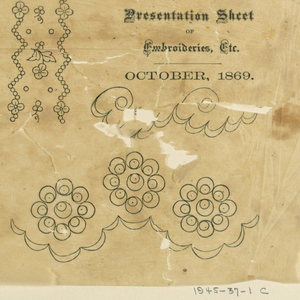 Presentation Sheet
OF
Embroideries, Etc.
OCTOBER, 1869.
1945-37-1 C